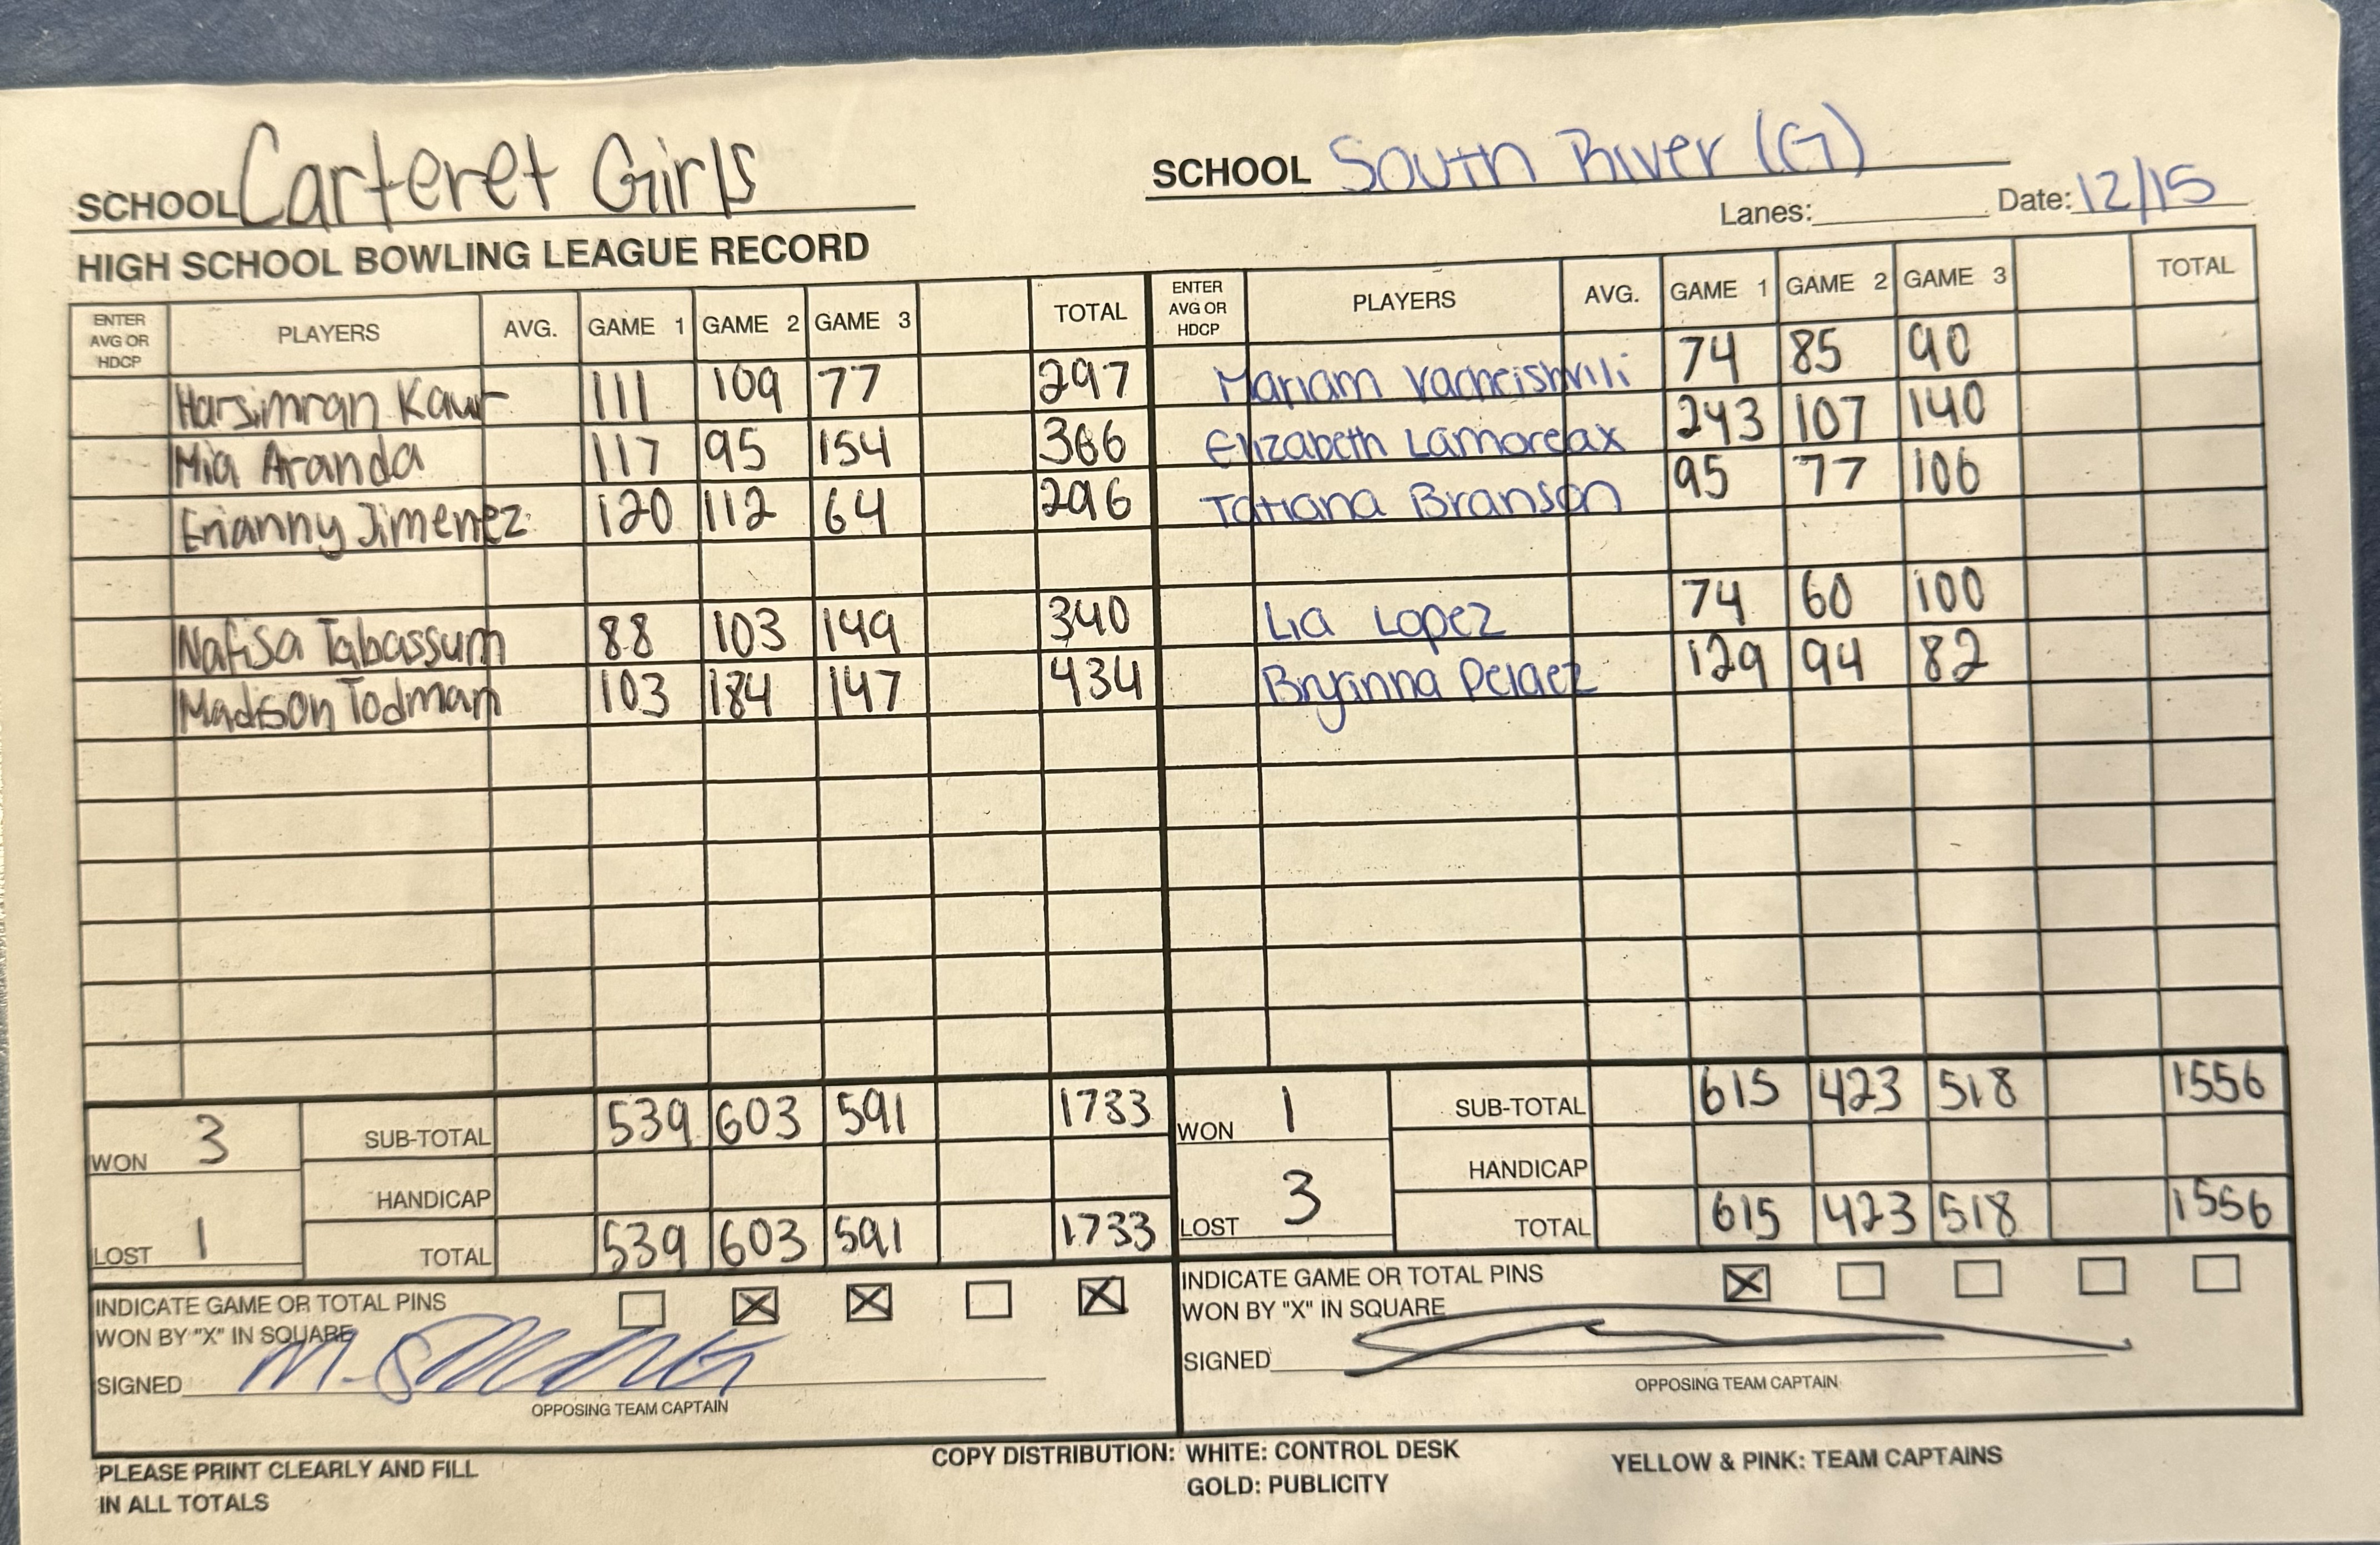 SCHOOL Carteret Girls
SCHOOL South River (G)
Lanes: Date: 12/15
HIGH SCHOOL BOWLING LEAGUE RECORD
ENTER AVG OR HDCP PLAYERS AVG. GAME 1 GAME 2 GAME 3 TOTAL ENTER AVG OR HDCP PLAYERS AVG. GAME 1 GAME 2 GAME 3 TOTAL
Harsimran Kaur 111 109 77 297 Mariam 74 85 90
Mia Aranda 117 95 154 366 Elizabeth Lamoreax 243 107 140
Erianny Jimenez 120 112 64 296 Tatiana Branson 95 77 106
Nafisa Tabassum 88 103 149 340 Lia Lopez 74 60 100
Madison Todman 103 184 147 434 Bryanna Pelaez 129 94 82
WON 3 SUB-TOTAL 539 603 591 1733 WON 1 SUB-TOTAL 615 423 518 1556
HANDICAP HANDICAP
LOST 1 TOTAL 539 603 591 1733 LOST 3 TOTAL 615 423 518 1556
INDICATE GAME OR TOTAL PINS INDICATE GAME OR TOTAL PINS
WON BY "X" IN SQUARE WON BY "X" IN SQUARE
SIGNED SIGNED
OPPOSING TEAM CAPTAIN OPPOSING TEAM CAPTAIN
PLEASE PRINT CLEARLY AND FILL COPY DISTRIBUTION: WHITE: CONTROL DESK YELLOW & PINK: TEAM CAPTAINS
IN ALL TOTALS GOLD: PUBLICITY